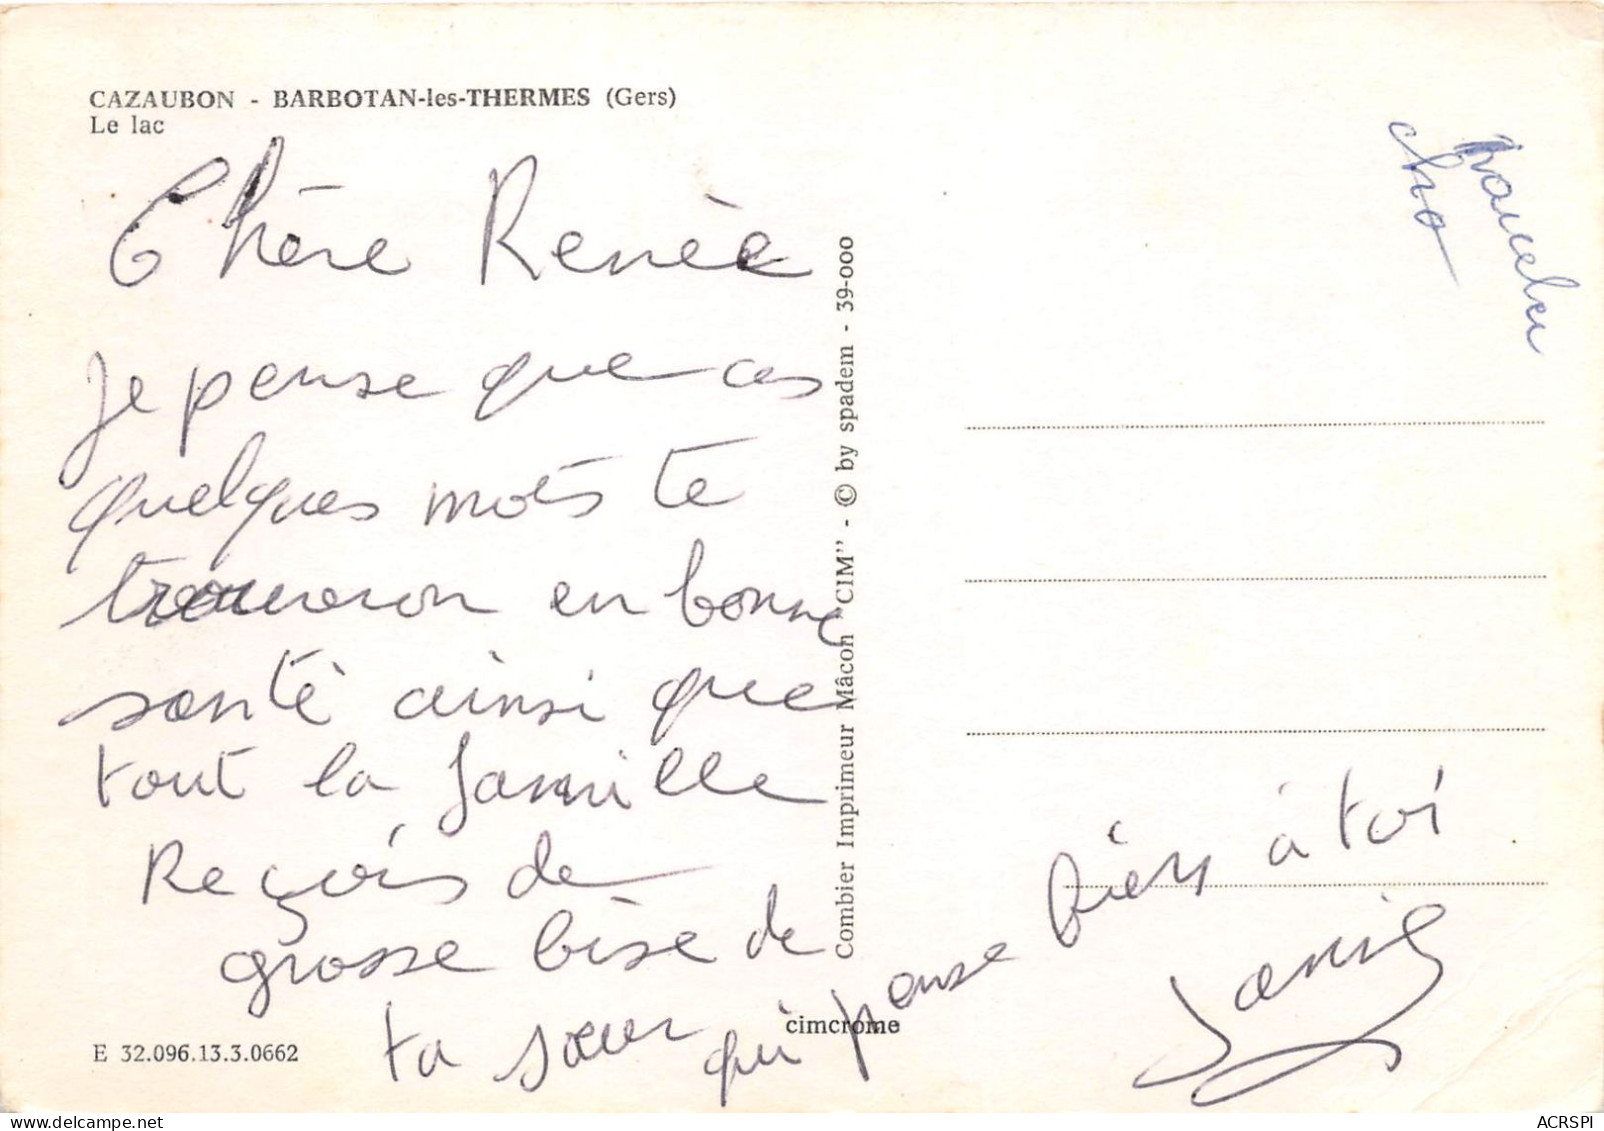 CAZAUBON - BARBOTAN-les-THERMES (Gers)
Le lac
Chère Renèe
Je pense que ces
quelques mots te
trouveron en bonne
santè ainsi que
tout la famille
Reçois de
grosse bise de
ta sœur qui pense bien à toi
Janie
E 32.096.13.3.0662
cimcrome
Combier Imprimeur Mâcon "CIM" - © by spadem - 39-000
ACRSPI